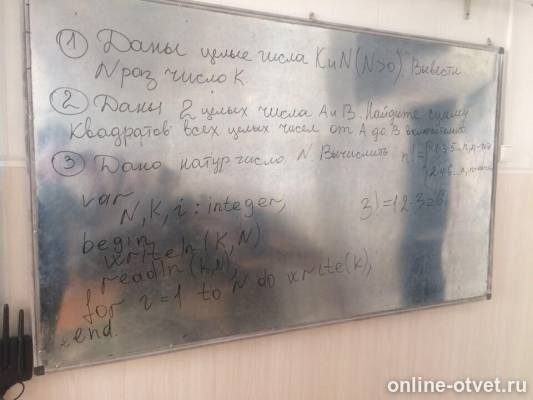 ① Даны целые числа К и N (N>0). Вывести
N раз число К.
② Даны 2 целых числа А и В. Найдите сумму
квадратов всех целых чисел от А до В включительно
③ Дано натур число N. Вычислить n!=
var
N, K, i : integer;
begin
writeln (K, N)
readln (K, N);
for i = 1 to N do write(k);
end.
3!=1·2·3=6
online-otvet.ru